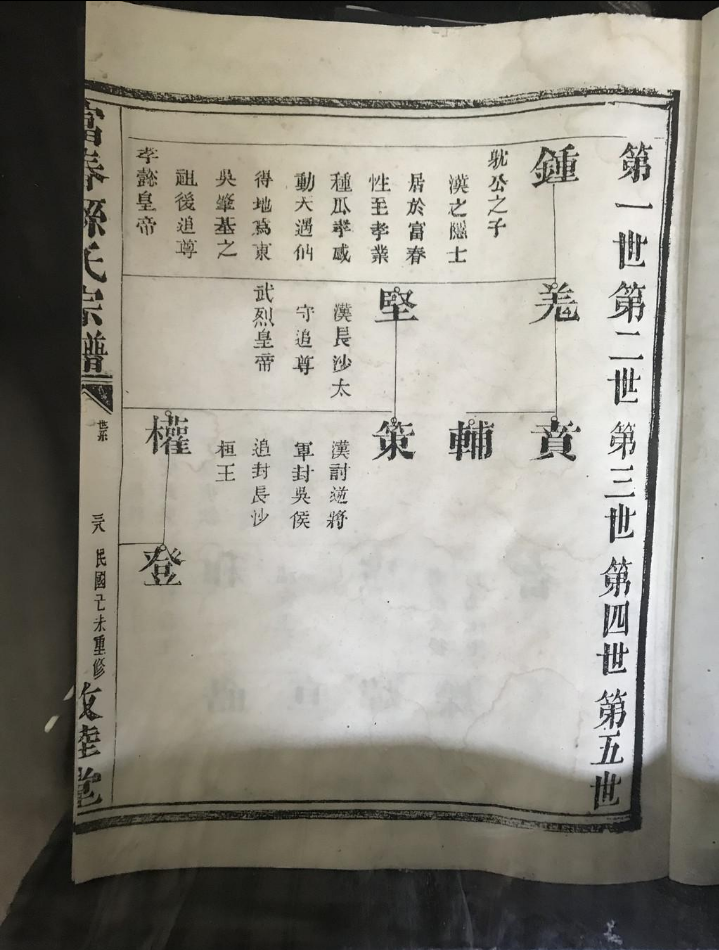 第一世
第二世
第三世
第四世
第五世
鍾
耽公之子
漢之隱士
居於富春
性至孝業
種瓜孝感
動天遇仙
得地爲東
吳肇基之
祖後追尊
孝懿皇帝
羌
堅
漢長沙太
守追尊
武烈皇帝
賁
輔
策
漢討逆將
軍封吳侯
追封長沙
桓王
權
登
富春孫氏宗譜
民國己未重修
友睦堂